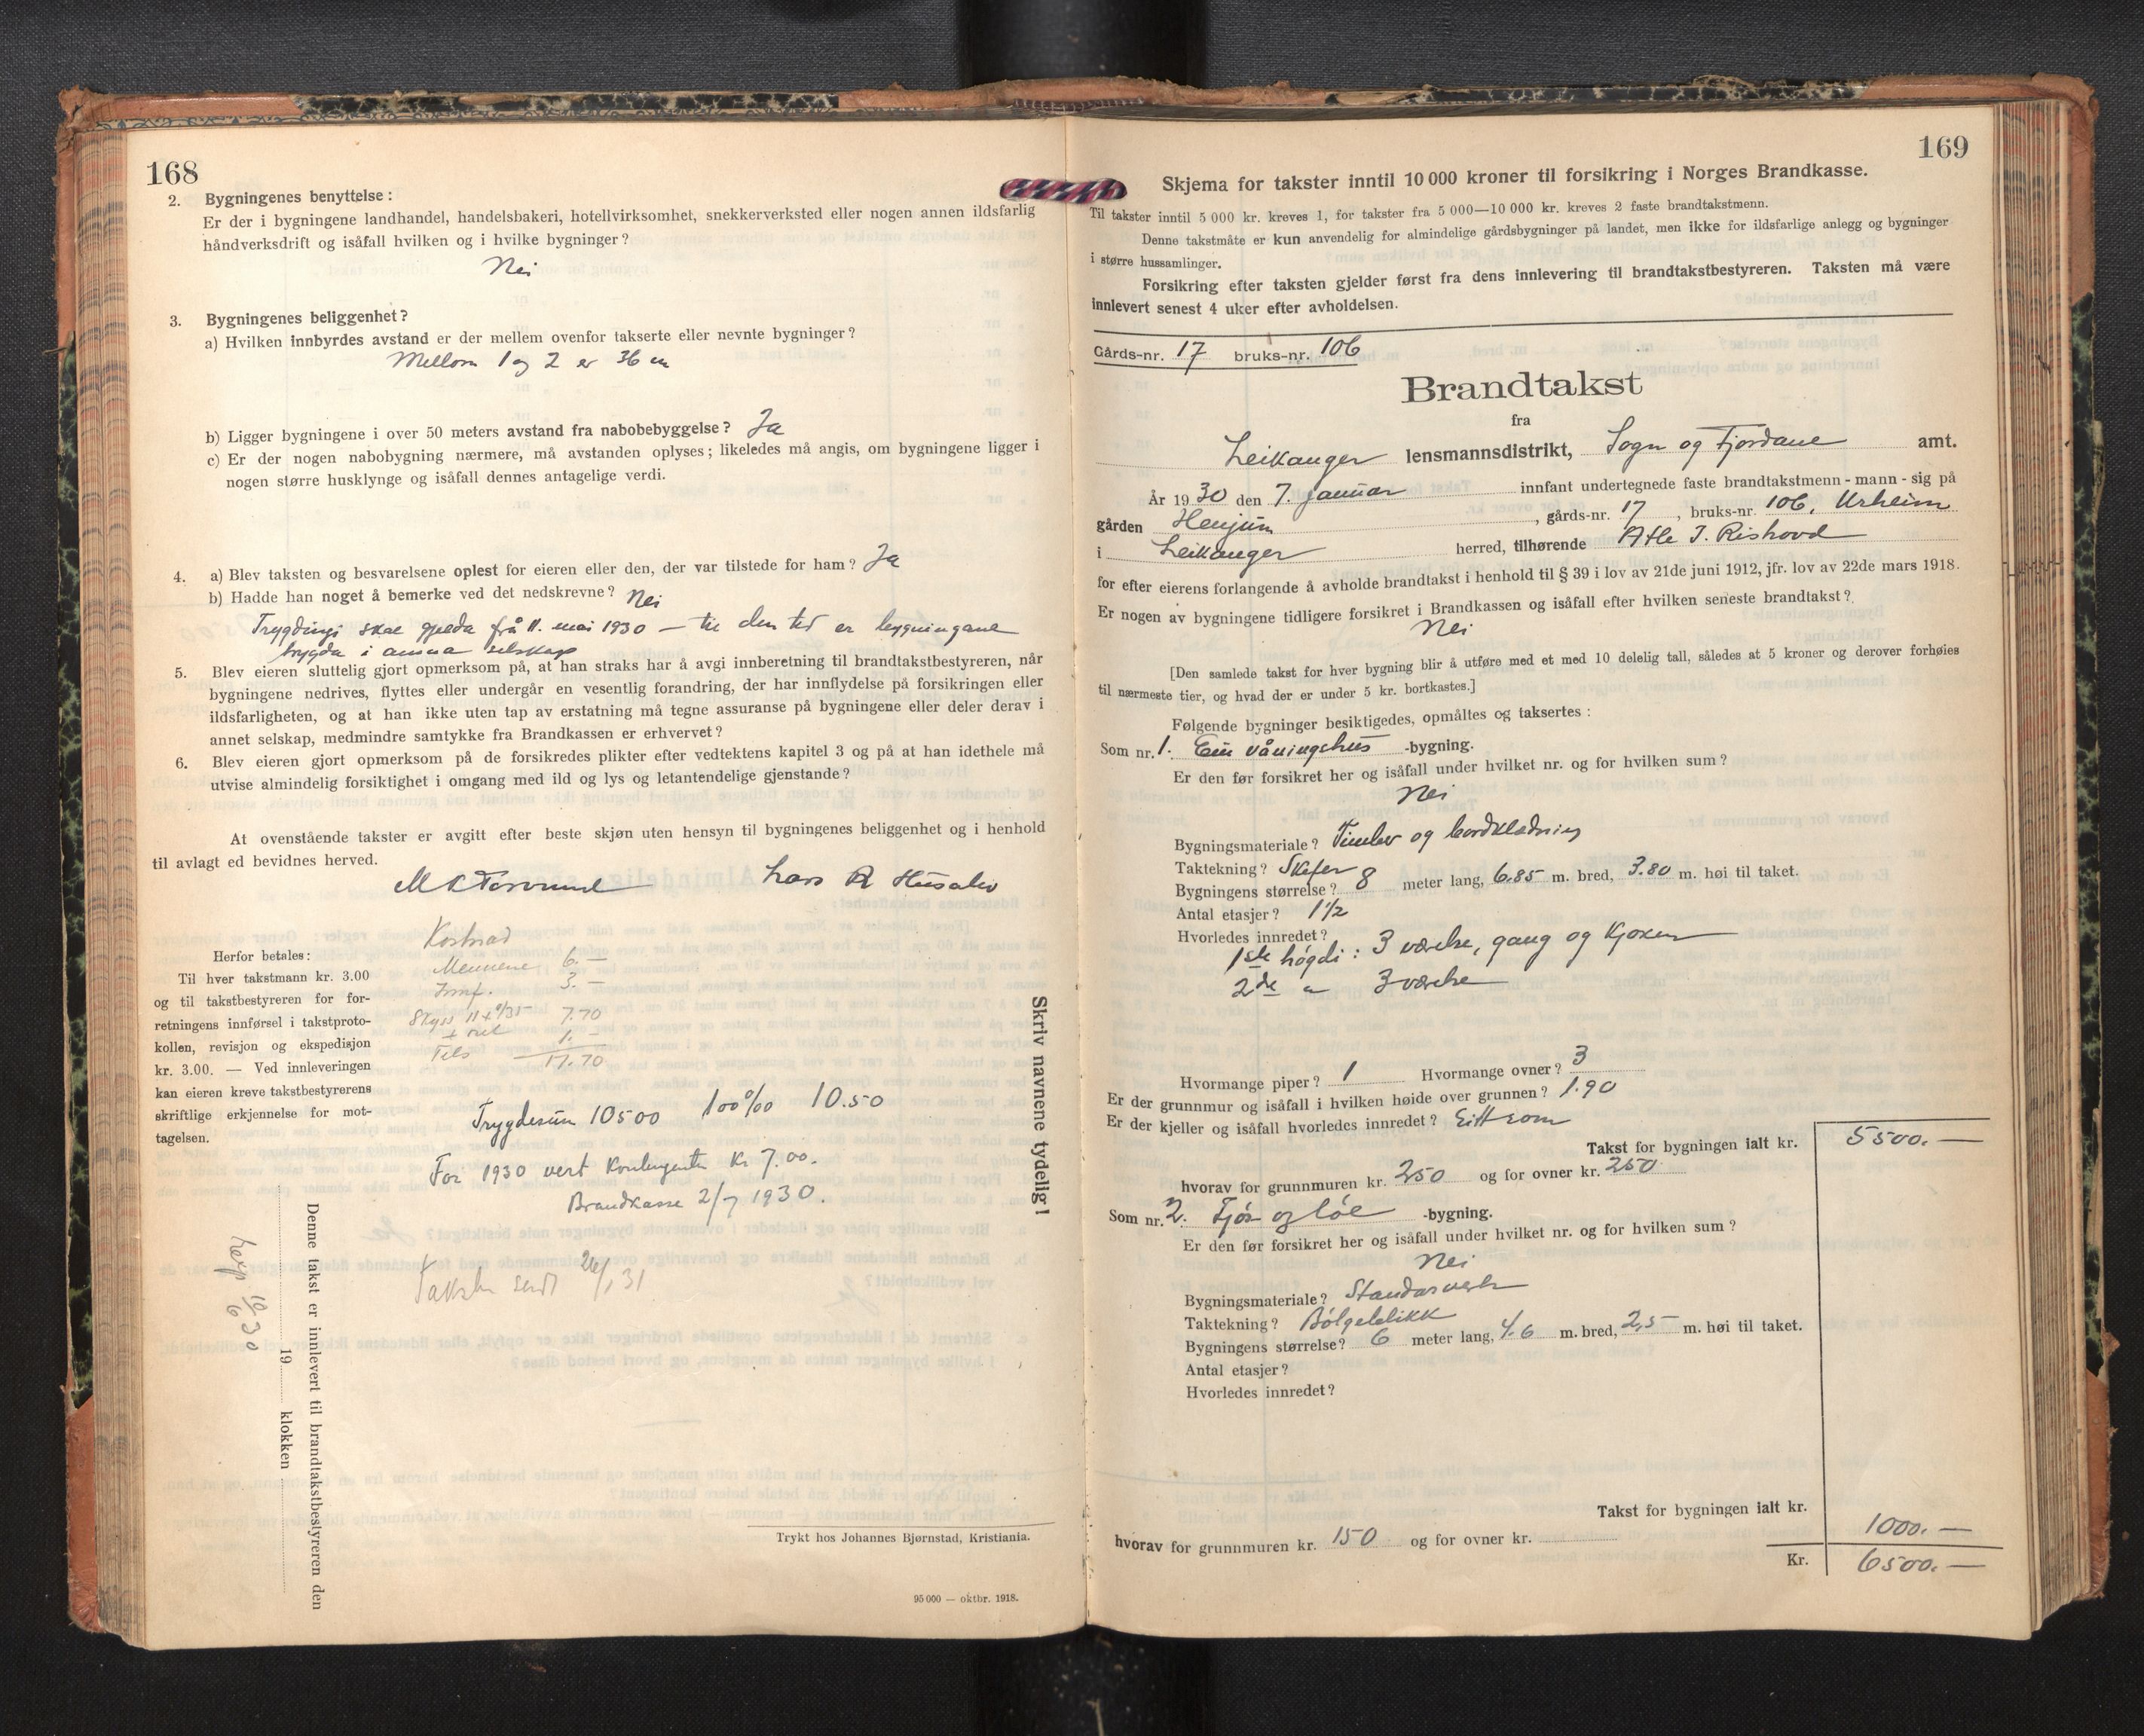 168
2. Bygningenes benyttelse :
Er der i bygningene landhandel, handelsbakeri, hotellvirksomhet, snekkerverksted eller nogen annen ildsfarlig
håndverksdrift og isåfall hvilken og i hvilke bygninger ?
Nei
3. Bygningenes beliggenhet ?
a) Hvilken innbyrdes avstand er der mellem ovenfor takserte eller nevnte bygninger ?
Mellom 1 og 2 er 36 m
b) Ligger bygningene i over 50 meters avstand fra nabobebyggelse ? Ja
c) Er der nogen nabobygning nærmere, må avstanden oplyses ; likeledes må angis, om bygningene ligger i
nogen større husklynge og isåfall dennes antagelige verdi.
4. a) Blev taksten og besvarelsene oplest for eieren eller den, der var tilstede for ham ? Ja
b) Hadde han noget å bemerke ved det nedskrevne ? Nei
Trygdingi skal gjelda frå 11. mai 1930 — til den tid er bygningane
trygda i anna selskap
5. Blev eieren sluttelig gjort opmerksom på, at han straks har å avgi innberetning til brandtakstbestyreren, når
bygningene nedrives, flyttes eller undergår en vesentlig forandring, der har innflydelse på forsikringen eller
ildsfarligheten, og at han ikke uten tap av erstatning må tegne assuranse på bygningene eller deler derav i
annet selskap, medmindre samtykke fra Brandkassen er erhvervet ?
6. Blev eieren gjort opmerksom på de forsikredes plikter efter vedtektens kapitel 3 og på at han idethele må
utvise almindelig forsiktighet i omgang med ild og lys og letantendelige gjenstande ?
At ovenstående takster er avgitt efter beste skjøn uten hensyn til bygningenes beliggenhet og i henhold
til avlagt ed bevidnes herved.
Lars R Husabø
Kostnad
Mennene 6. —
Innf. 3. —
Skyss 7.70
1. —
Tils 17.70
Herfor betales :
Til hver takstmann kr. 3.00
og til takstbestyreren for for-
retningens innførsel i takstproto-
kollen, revisjon og ekspedisjon
kr. 3.00. — Ved innleveringen
kan eieren kreve takstbestyrerens
skriftlige erkjennelse for mot-
tagelsen.
Trygdesum 10500 10.50
For 1930 vert kontingenten kr 7.00.
Brandkassa 2/7 1930.
Taksten sendt
Skriv navnene tydelig !
Denne takst er innlevert til brandtakstbestyreren den
19 klokken
Trykt hos Johannes Bjørnstad, Kristiania.
95 000 — oktbr. 1918.
169
Skjema for takster inntil 10 000 kroner til forsikring i Norges Brandkasse.
Til takster inntil 5 000 kr. kreves 1, for takster fra 5 000—10 000 kr. kreves 2 faste brandtakstmenn.
Denne takstmåte er kun anvendelig for almindelige gårdsbygninger på landet, men ikke for ildsfarlige anlegg og bygninger
i større hussamlinger.
Forsikring efter taksten gjelder først fra dens innlevering til brandtakstbestyreren. Taksten må være
innlevert senest 4 uker efter avholdelsen.
Gårds-nr. 17 bruks-nr. 106
Brandtakst
fra
Leikanger lensmannsdistrikt, Sogn og Fjordane amt.
År 1930 den 7. januar innfant undertegnede faste brandtakstmenn - mann - sig på
gården Henjum , gårds-nr. 17 , bruks-nr. 106, Urheim
i Leikanger herred, tilhørende Atle J. Rishovd
for efter eierens forlangende å avholde brandtakst i henhold til § 39 i lov av 21de juni 1912, jfr. lov av 22de mars 1918.
Er nogen av bygningene tidligere forsikret i Brandkassen og isåfall efter hvilken seneste brandtakst ?
Nei
[Den samlede takst for hver bygning blir å utføre med et med 10 delelig tall, således at 5 kroner og derover forhøies
til nærmeste tier, og hvad der er under 5 kr. bortkastes.]
Følgende bygninger besiktigedes, opmåltes og taksertes :
Som nr. 1. Ein våningshus -bygning.
Er den før forsikret her og isåfall under hvilket nr. og for hvilken sum ?
Nei
Bygningsmateriale ? Timber og bordklædning
Taktekning ? Skifer
Bygningens størrelse ? 8 meter lang, 6.85 m. bred, 3.80 m. høi til taket.
Antal etasjer ? 1½
Hvorledes innredet ?
1ste høgdi : 3 værelse, gang og kjøken
2de " 3 værelse
Hvormange piper ? 1 Hvormange ovner ? 3
Er der grunnmur og isåfall i hvilken høide over grunnen ? 1.90
Er der kjeller og isåfall hvorledes innredet ? Eitt rom
Takst for bygningen ialt kr. 5500. —
hvorav for grunnmuren kr. 250 og for ovner kr. 250
Som nr. 2. Fjøs og løe -bygning.
Er den før forsikret her og isåfall under hvilket nr. og for hvilken sum ?
Nei
Bygningsmateriale ? Standarverk
Taktekning ? Bølgeblikk
Bygningens størrelse ? 6 meter lang, 4.6 m. bred, 2,5 m. høi til taket.
Antal etasjer ?
Hvorledes innredet ?
Takst for bygningen ialt kr. 1000. —
hvorav for grunnmuren kr. 150 og for ovner kr.
Kr. 6500. —